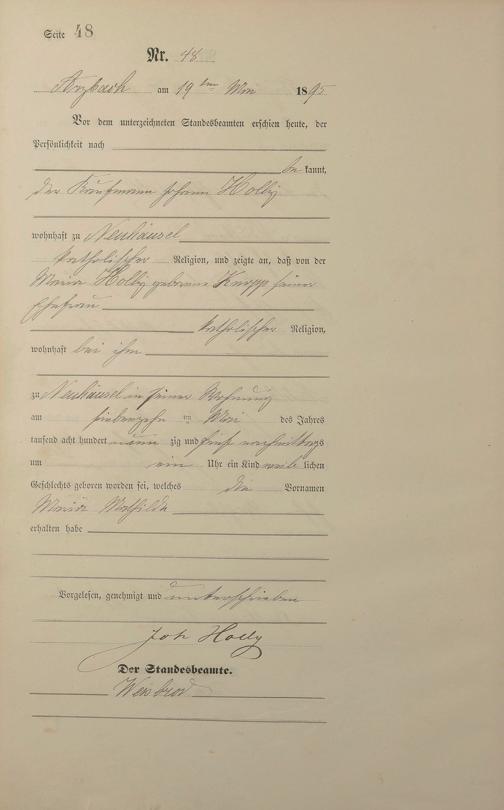 Seite 48
Nr. 48
Arzbach am 19 ten Mai 1895
Vor dem unterzeichneten Standesbeamten erschien heute, der
Persönlichkeit nach
be kannt,
der Kaufmann Johann Holly
wohnhaft zu Neuhäusel
katholischer Religion, und zeigte an, daß von der
Maria Holly geborene Knopp seiner
Ehefrau
katholischer Religion,
wohnhaft bei ihm
zu Neuhäusel in seiner Wohnung
am siebenzehn ten Mai des Jahres
tausend acht hundert neun zig und fünf nachmittags
um ein Uhr ein Kind weib lichen
Geschlechts geboren worden sei, welches die Vornamen
Maria Mathilda
erhalten habe
Vorgelesen, genehmigt und unterschrieben
Joh Holly
Der Standesbeamte.
Weisbrod